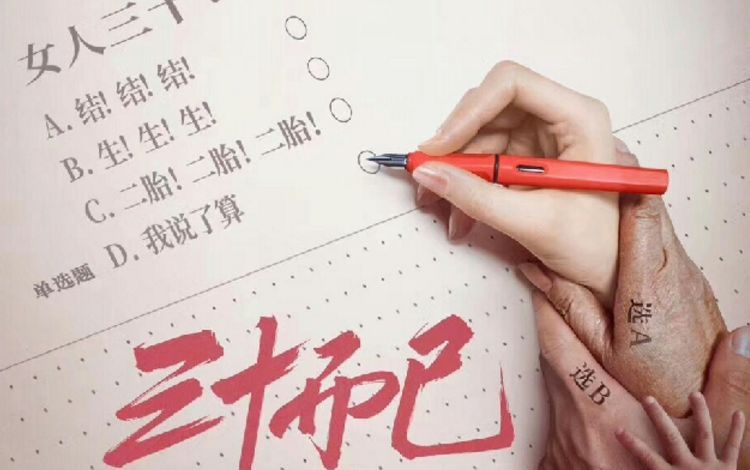 女人三十
A. 结! 结! 结!
B. 生! 生! 生!
C. 二胎! 二胎! 二胎!
D. 我说了算
单选题
选A
选B
三十而已